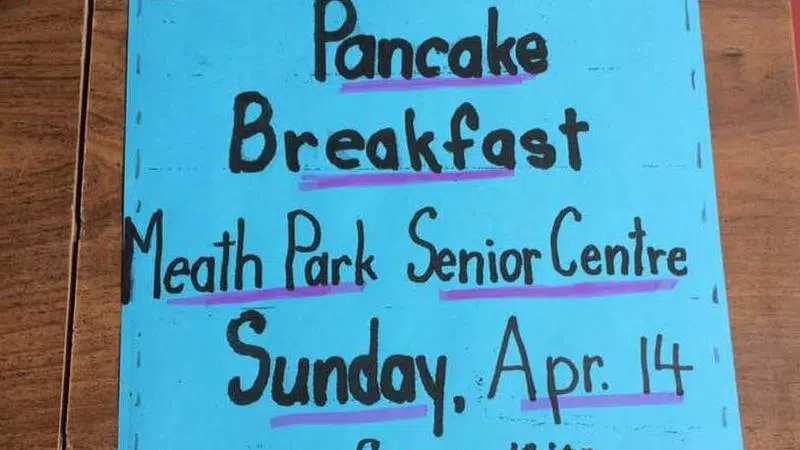 Pancake
Breakfast
Meath Park Senior Centre
Sunday, Apr. 14